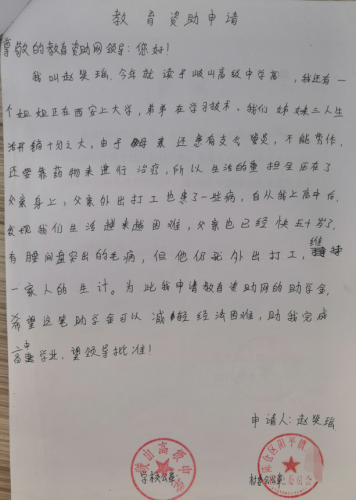 教育资助申请
尊敬的教育资助网领导:您好!
我叫赵昊瑶,今年就读于岐山高级中学高,我还有一
个姐姐正在西安上大学,弟弟在学习技术,我们姊妹三人生
活开销十分之大,由于母亲还患有支气管炎,不能劳作,
还要靠药物来进行治疗,所以生活的重担全压在了
父亲身上,父亲外出打工也患了一些病,自从我上高中后,
发现我们生活越来越困难,父亲也已经快五十岁了,
有腰间盘突出的毛病,但他仍旧外出打工,维持
一家人的生计。为此我申请教育资助网的助学金,
希望这笔助学金可以减轻经济困难,助我完成
高中学业,望领导批准!
申请人:赵昊瑶
岐山高级中学
学校公章
村委会公章